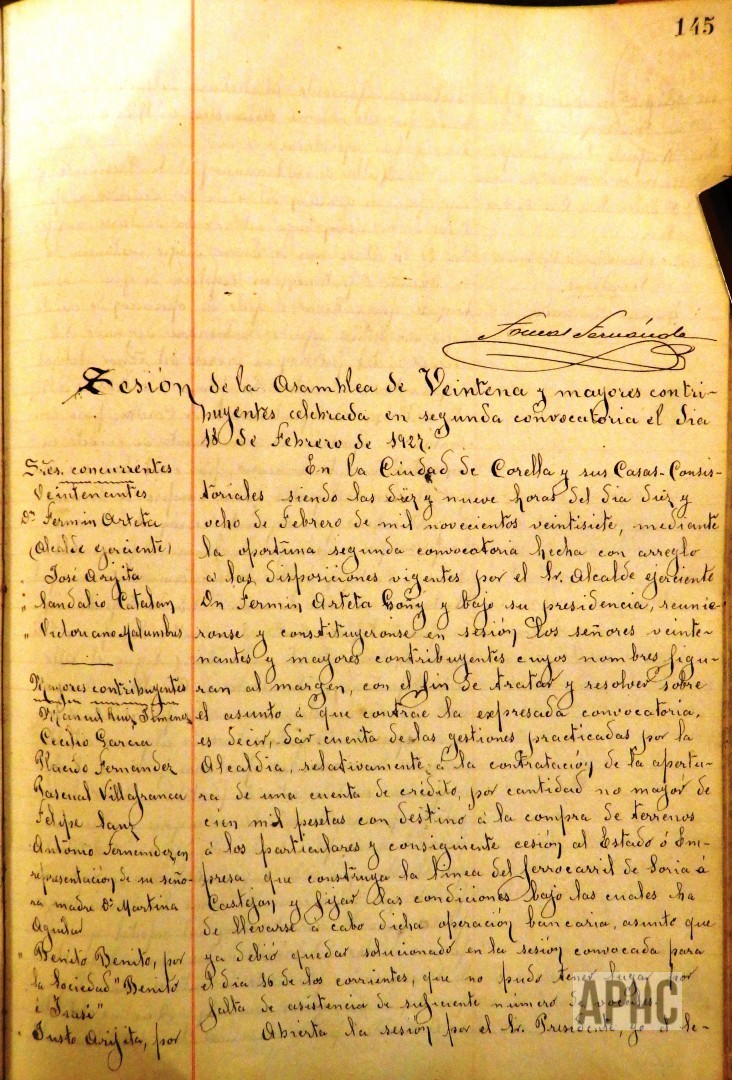 145
Sesión de la Asamblea de Veintena y mayores contri-
buyentes celebrada en segunda convocatoria el dia
18 de Febrero de 1927.
Sres. concurrentes
Veintenantes
Dn Fermin Arteta
(Alcalde ejerciente)
" José Arijita
" Sandalio Catalan
" Victoriano Malumbres
Mayores contribuyentes
Manuel Ruiz Jimenez
Cecilio Garcia
Placido Fernandez
Pascual Villafranca
Felipe Sanz
Antonio Fernandez, en
representación de su seño-
ra madre Dª Martina
Aguilar
" Benito Benito, por
la Sociedad "Benito
é Isasi"
" Justo Arijita, por
En la Ciudad de Corella y sus Casas-Consis-
toriales siendo las diez y nueve horas del dia diez y
ocho de Febrero de mil novecientos veintisiete, mediante
la oportuna segunda convocatoria hecha con arreglo
a las disposiciones vigentes por el Sr. Alcalde ejerciente
Dn Fermin Arteta Goñy y bajo su presidencia, reunie-
ronse y constituyeronse en sesión los señores veinte-
nantes y mayores contribuyentes cuyos nombres figu-
ran al margen, con el fin de tratar y resolver sobre
el asunto á que contrae la expresada convocatoria,
es decir, dar cuenta de las gestiones practicadas por la
Alcaldia, relativamente á la contratación de la apertu-
ra de una cuenta de crédito, por cantidad no mayor de
cien mil pesetas con destino á la compra de terrenos
á los particulares y consiguiente cesión al Estado ó Em-
presa que construya la linea del ferrocarril de Soria á
Castejon y fijar las condiciones bajo las cuales ha
de llevarse á cabo dicha operación bancaria, asunto que
ya debió quedar solucionado en la sesión convocada para
el dia 16 de los corrientes, que no pudo tener lugar por
falta de asistencia de suficiente numero de vocales.
Abierta la sesión por el Sr. Presidente, yo el Se-
APHC